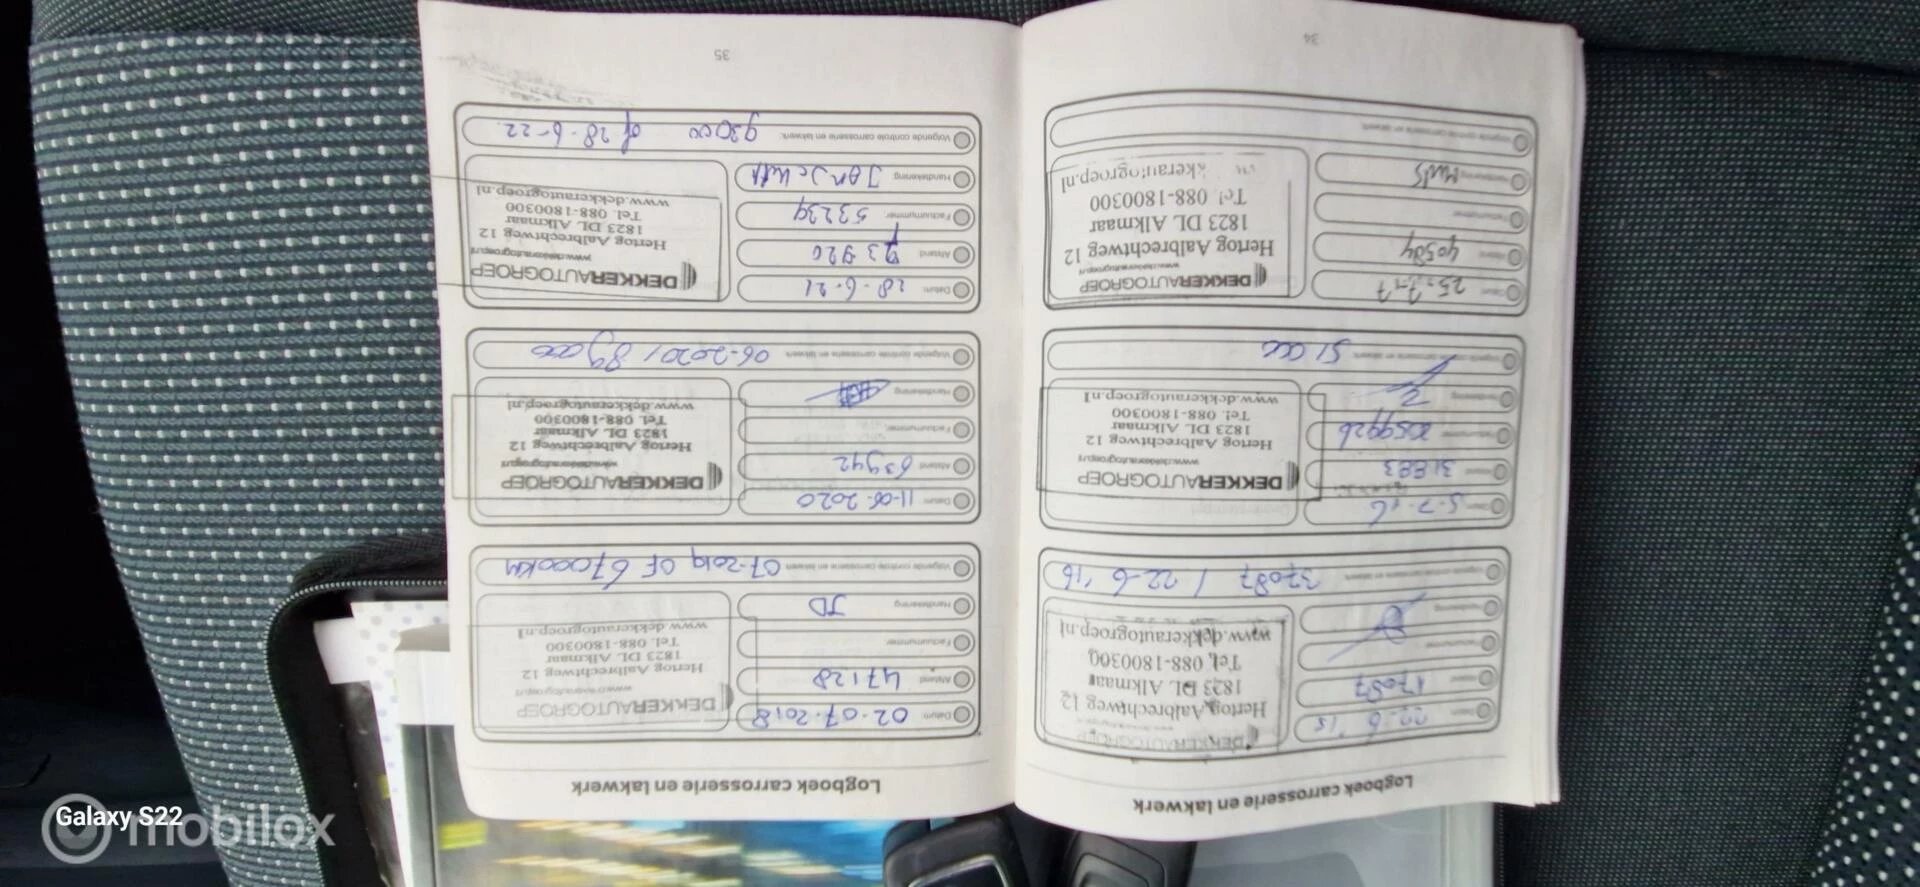 Logboek carrosserie en lakwerk
Datum 22-6'15
Afstand 17087
Factuurnummer
Handtekening
DEKKERAUTOGROEP
Hertog Aalbrechtweg 12
1823 DL Alkmaar
Tel. 088-1800300
www.dekkerautogroep.nl
Volgende controle carrosserie en lakwerk 37087 / 22-6'16
Datum 5-7-16
Afstand 31883
Factuurnummer
Handtekening
DEKKERAUTOGROEP
www.dekkerautogroep.nl
Hertog Aalbrechtweg 12
1823 DL Alkmaar
Tel. 088-1800300
www.dekkerautogroep.nl
Volgende controle carrosserie en lakwerk 51000
Datum 25-7-17
Afstand 40584
Factuurnummer
Handtekening
DEKKERAUTOGROEP
www.dekkerautogroep.nl
Hertog Aalbrechtweg 12
1823 DL Alkmaar
Tel. 088-1800300
Volgende controle carrosserie en lakwerk
34
Logboek carrosserie en lakwerk
Datum 02-07-2018
Afstand 47128
Factuurnummer
Handtekening JD
DEKKERAUTOGROEP
www.dekkerautogroep.nl
Hertog Aalbrechtweg 12
1823 DL Alkmaar
Tel. 088-1800300
www.dekkerautogroep.nl
Volgende controle carrosserie en lakwerk 07-2019 OF 67000KM
Datum 11-06-2020
Afstand 63942
Factuurnummer:
Handtekening
DEKKERAUTOGROEP
www.dekkerautogroep.nl
Hertog Aalbrechtweg 12
1823 DL Alkmaar
Tel. 088-1800300
www.dekkerautogroep.nl
Volgende controle carrosserie en lakwerk 06-2020 / 89000
Datum: 28-6-21
Afstand 73920
Factuurnummer: 53239
Handtekening
DEKKERAUTOGROEP
www.dekkerautogroep.nl
Hertog Aalbrechtweg 12
1823 DL Alkmaar
Tel. 088-1800300
www.dekkerautogroep.nl
Volgende controle carrosserie en lakwerk: 93000 of 28-6-22
35
Galaxy S22
mobilox